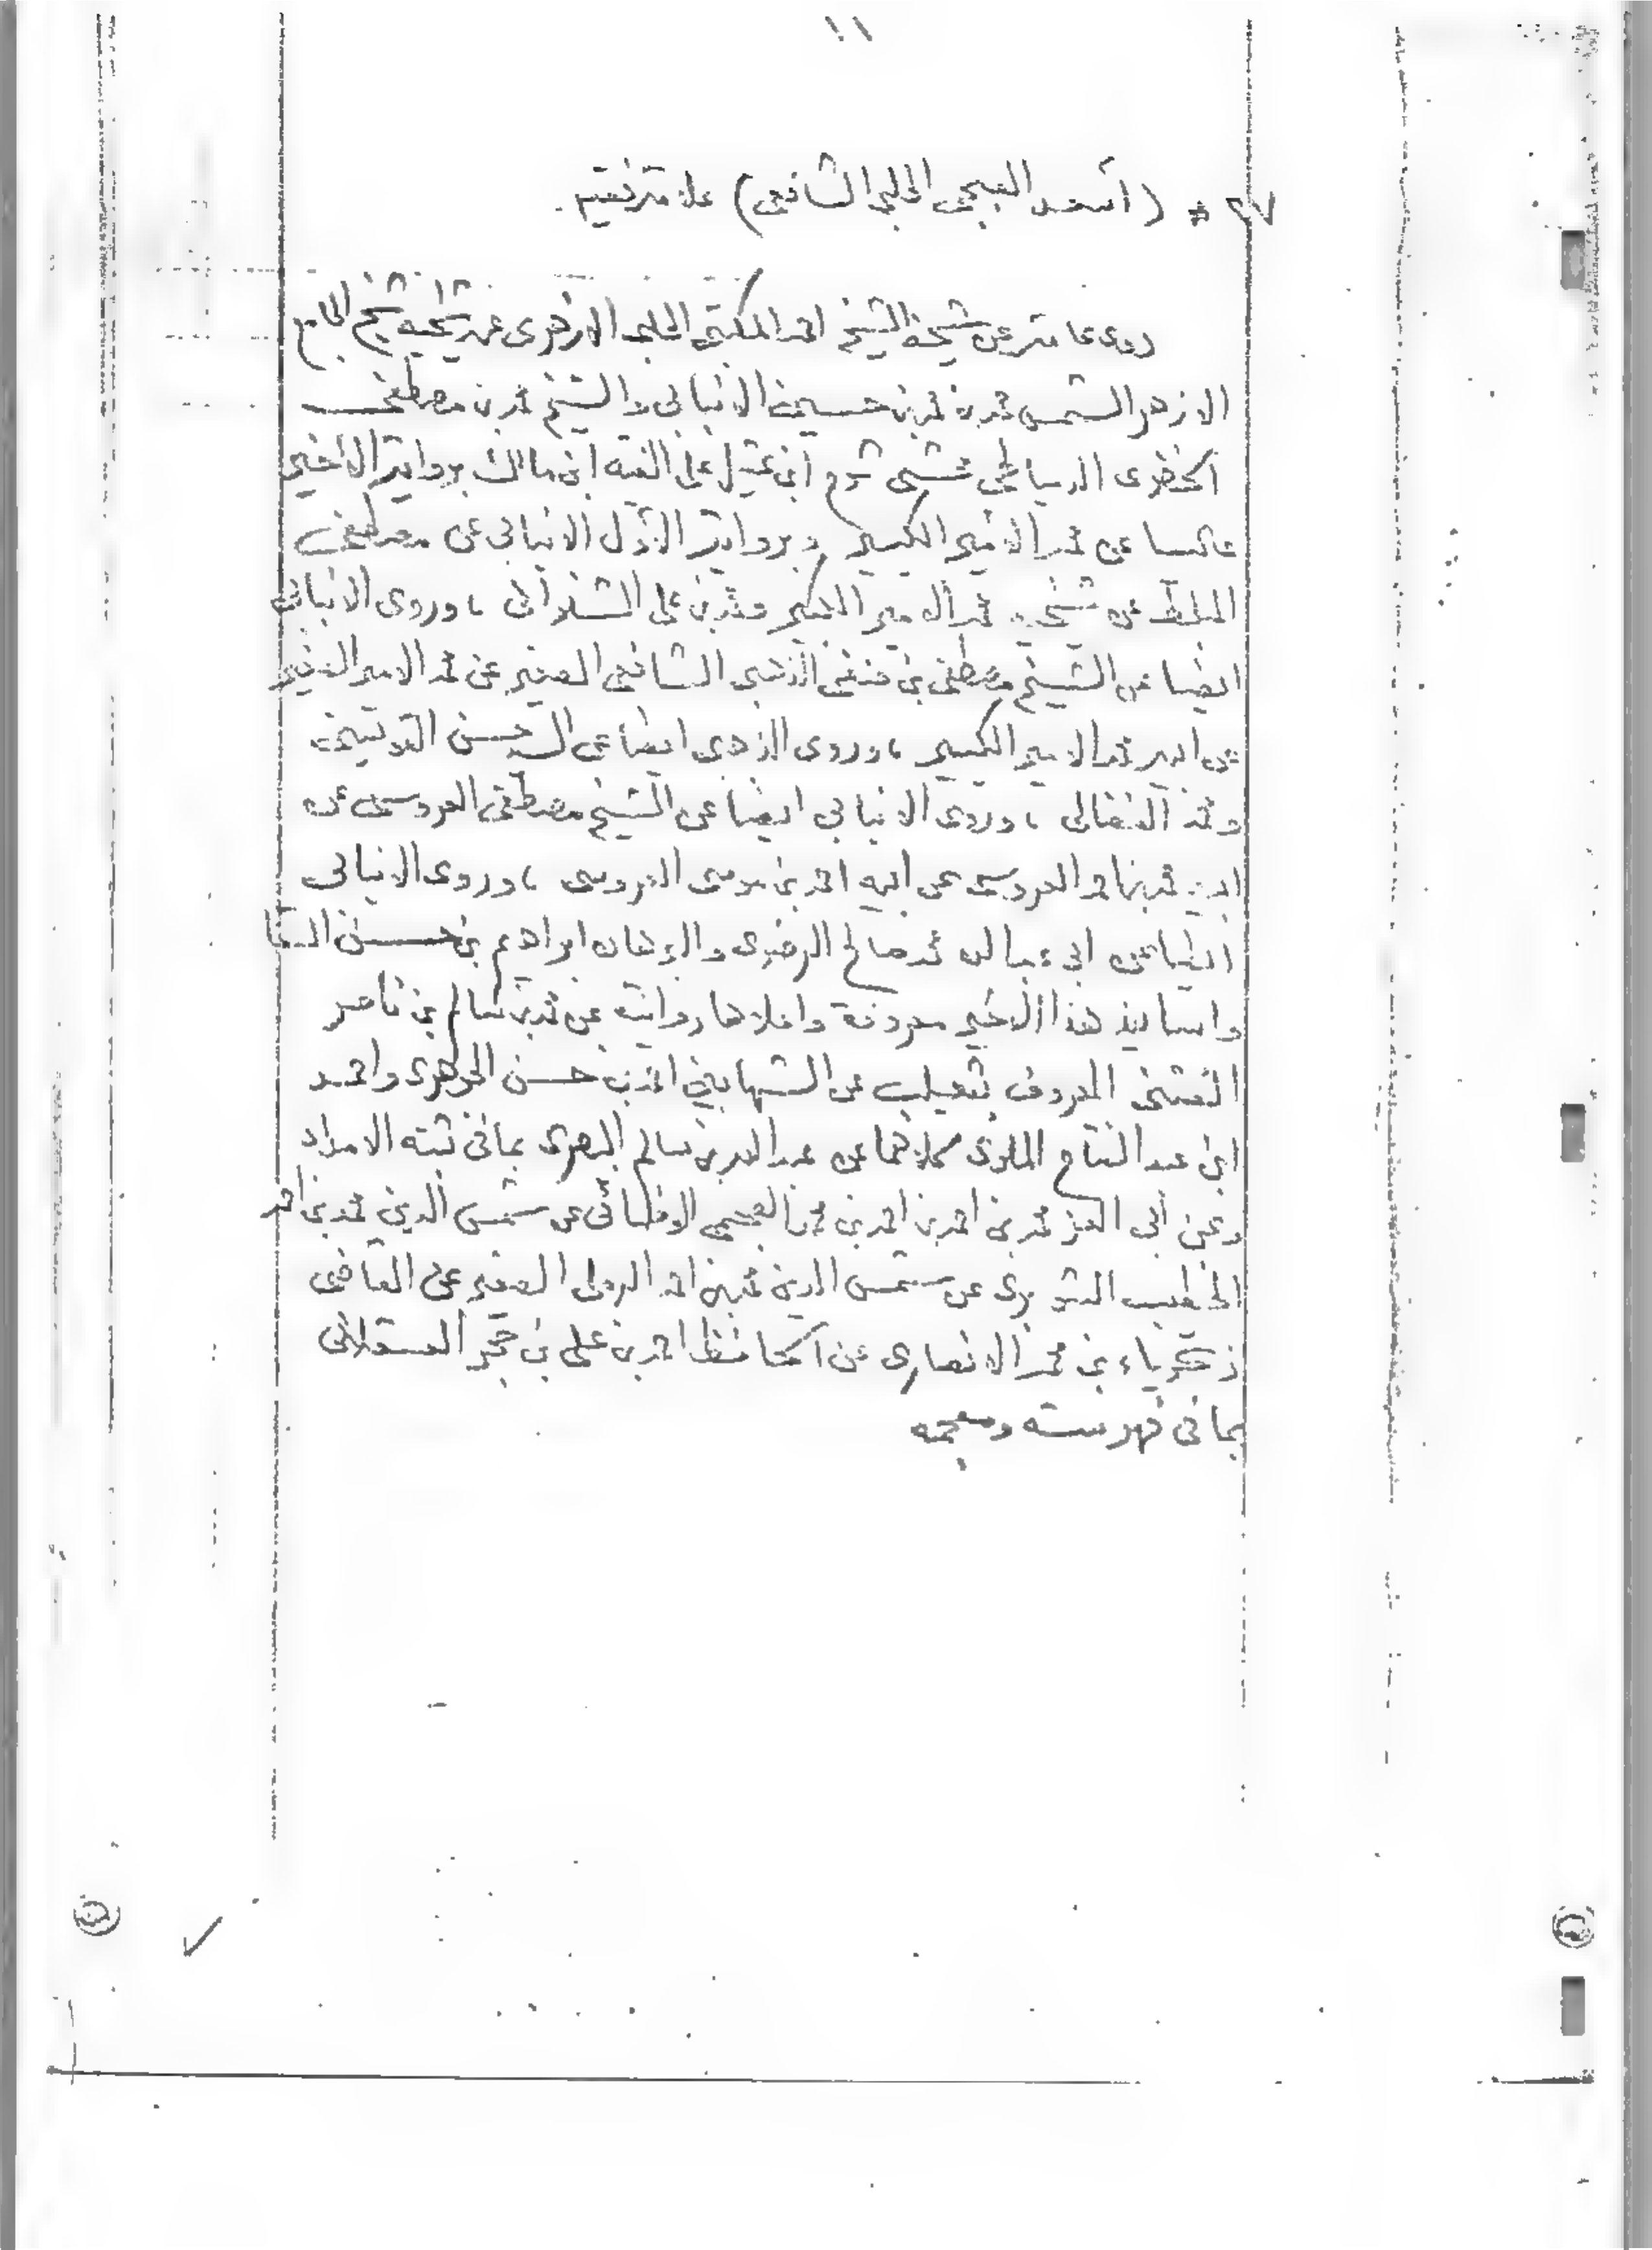 ١١
٢٧ * (أسعد العبجي الحلبي الشافعي) علامة فقيه.
روى عامة عن شيخه الشيخ احمد المكتبي الحلبي الازهري عن شيخيه شيخ الجامع
الازهر الشمس محمد بن محمد بن حسين الانبابي والشيخ محمد بن مصطفى
الخضري الدمياطي محشي شرح ابن عقيل على الفية ابن مالك برواية الأخير
عن محمد الامير الكبير وبرواية الأول الانبابي عن مصطفى
المبلط عن شيخيه محمد الامير الكبير ومحمد بن علي الشنواني ، وروى الانبابي
ايضا عن الشيخ مصطفى بن حنفي الذهبي الشافعي الصغير عن محمد الامير الصغير
عن ابيه محمد الامير الكبير ، وروى الذهبي ايضا عن السيد حسن القويسني
ومحمد الفضالي ، وروى الانبابي ايضا عن الشيخ مصطفى العروسي عن
ابيه محمد بن احمد العروسي عن ابيه احمد بن موسى العروسي ، وروى الانبابي
ايضا عن ابي عبد الله محمد صالح الرضوي والبرهان ابراهيم بن حسن السقا
واسانيد هذا الاخير معروفة واعلاها روايته عن محمد بن سالم بن ناصر
الفشني المعروف بثعيلب عن الشهابين احمد بن حسن الجوهري واحمد
ابن عبد الفتاح الملوي كلاهما عن عبد الله بن سالم البصري بما في ثبته الامداد
وعن أبي العز محمد بن احمد بن احمد بن محمد العجمي عن شمس الدين محمد بن احمد
الخطيب الشوبري عن شمس الدين محمد بن احمد الرملي الصغير عن القاضي
زكرياء بن محمد الانصاري عن الحافظ احمد بن علي بن حجر العسقلاني
بما في فهرسته ومعجمه